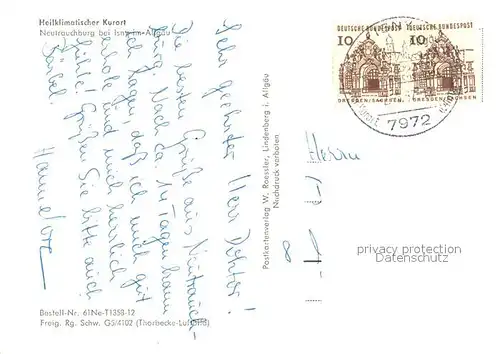 Heilklimatischer Kurort
Neutrauchburg bei Isny im Allgäu
Sehr geehrter Herr Doktor!
Die besten Grüße aus Neutrauch-
burg. Nach ca 14 Tagen kann
ich sagen, daß ich mich gut
erhole und mich herrlich
fühle! Grüßen Sie bitte auch
Hannelore
Bestell-Nr. 61Ne-T1358-12
Freig. Rg. Schw. G5/4102 (Thorbecke-Luftbild)
Postkartenverlag W. Roessler, Lindenberg i. Allgäu
Nachdruck verboten
DEUTSCHE BUNDESPOST
10
DRESDEN/SACHSEN
DEUTSCHE BUNDESPOST
10
DRESDEN/SACHSEN
7972
Herrn
privacy protection
Datenschutz